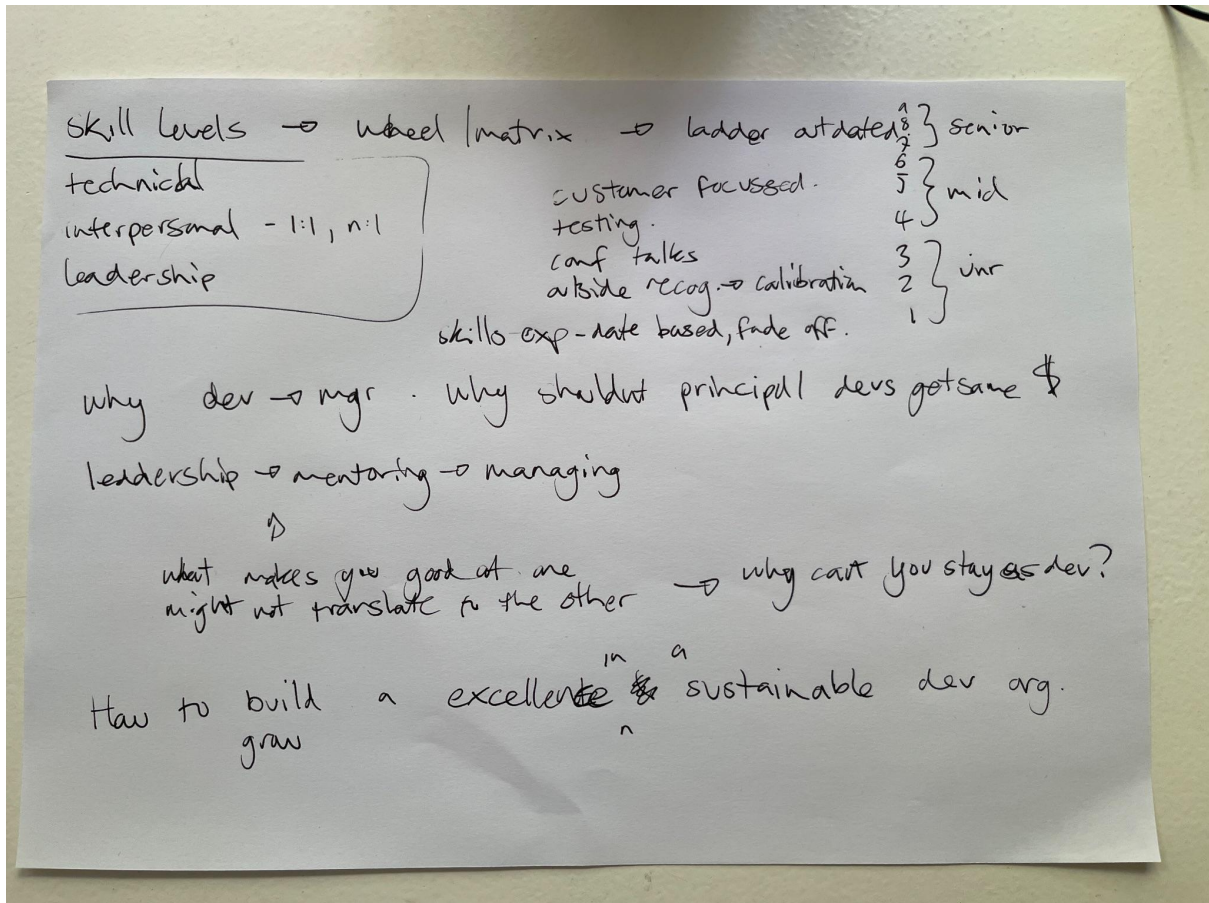 skill levels → wheel / matrix → ladder outdated
9
8 } senior
7
technical
6
5 } mid
4
customer focussed.
interpersonal - 1:1, n:1
testing.
leadership
conf talks
3
2 } jnr
1
outside recog. → calibration
skills exp - date based, fade off.
why dev → mgr . why shouldnt principal devs get same $
leadership → mentoring → managing
⇧
what makes you good at one
might not translate to the other → why cant you stay as dev?
in a
How to build a excellence sustainable dev org.
grow n